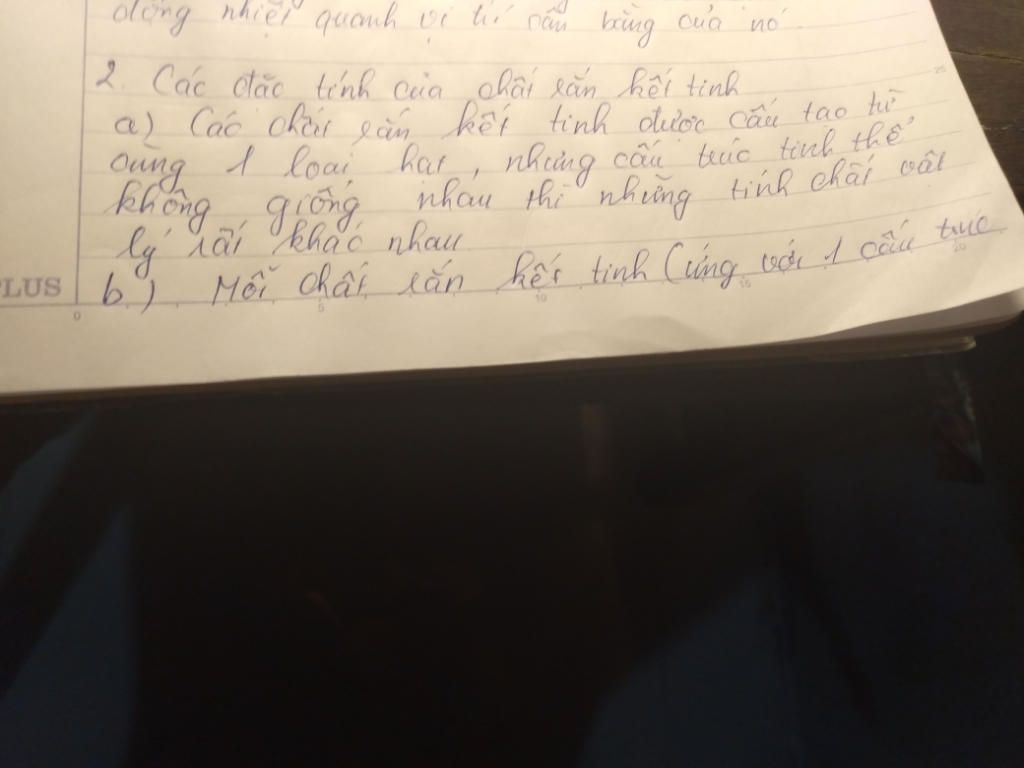 động nhiệt quanh vị trí cân bằng của nó.
2. Các đặc tính của chất rắn kết tinh
a) Các chất rắn kết tinh được cấu tạo từ
cùng 1 loại hạt, nhưng cấu trúc tinh thể
không giống nhau thì những tính chất vật
lý rất khác nhau
b) Mỗi chất rắn kết tinh (ứng với 1 cấu trúc
PLUS
0 5 10 15 20
25